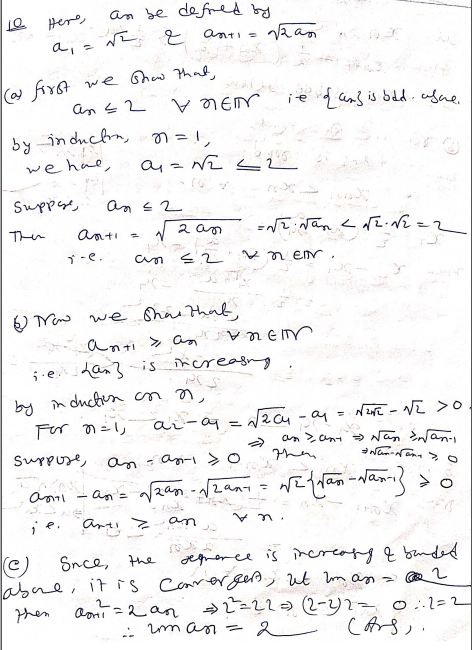 10 Here, an be defined by
a₁ = √2 & an+1 = √2an
(a) first we show that,
an ≤ 2 ∀ n∈ℕ i.e {an} is bdd. above.
by induction, n=1,
we have, a₁ = √2 ≤ 2
Suppose, an ≤ 2
Then an+1 = √2an = √2·√an < √2·√2 = 2
i.e. an ≤ 2 ∀ n∈ℕ.
b) Now we show that,
an+1 ≥ an ∀ n∈ℕ
i.e. {an} is increasing.
by induction on n,
For n=1, a2-a1 = √2a1 - a1 = √2√2 - √2 > 0.
⇒ an ≥ an-1 ⇒ √an ≥ √an-1
Suppose, an - an-1 ≥ 0 Then ⇒ √an - √an-1 ≥ 0
an+1 - an = √2an - √2an-1 = √2{√an - √an-1} ≥ 0
i.e. an+1 ≥ an ∀ n.
(c) Since, the sequence is increasing & bounded
above, it is convergent, let lim an = l
then an+1² = 2an ⇒ l² = 2l ⇒ (l-2)l = 0 ∴ l=2
∴ lim an = 2 (Ans).